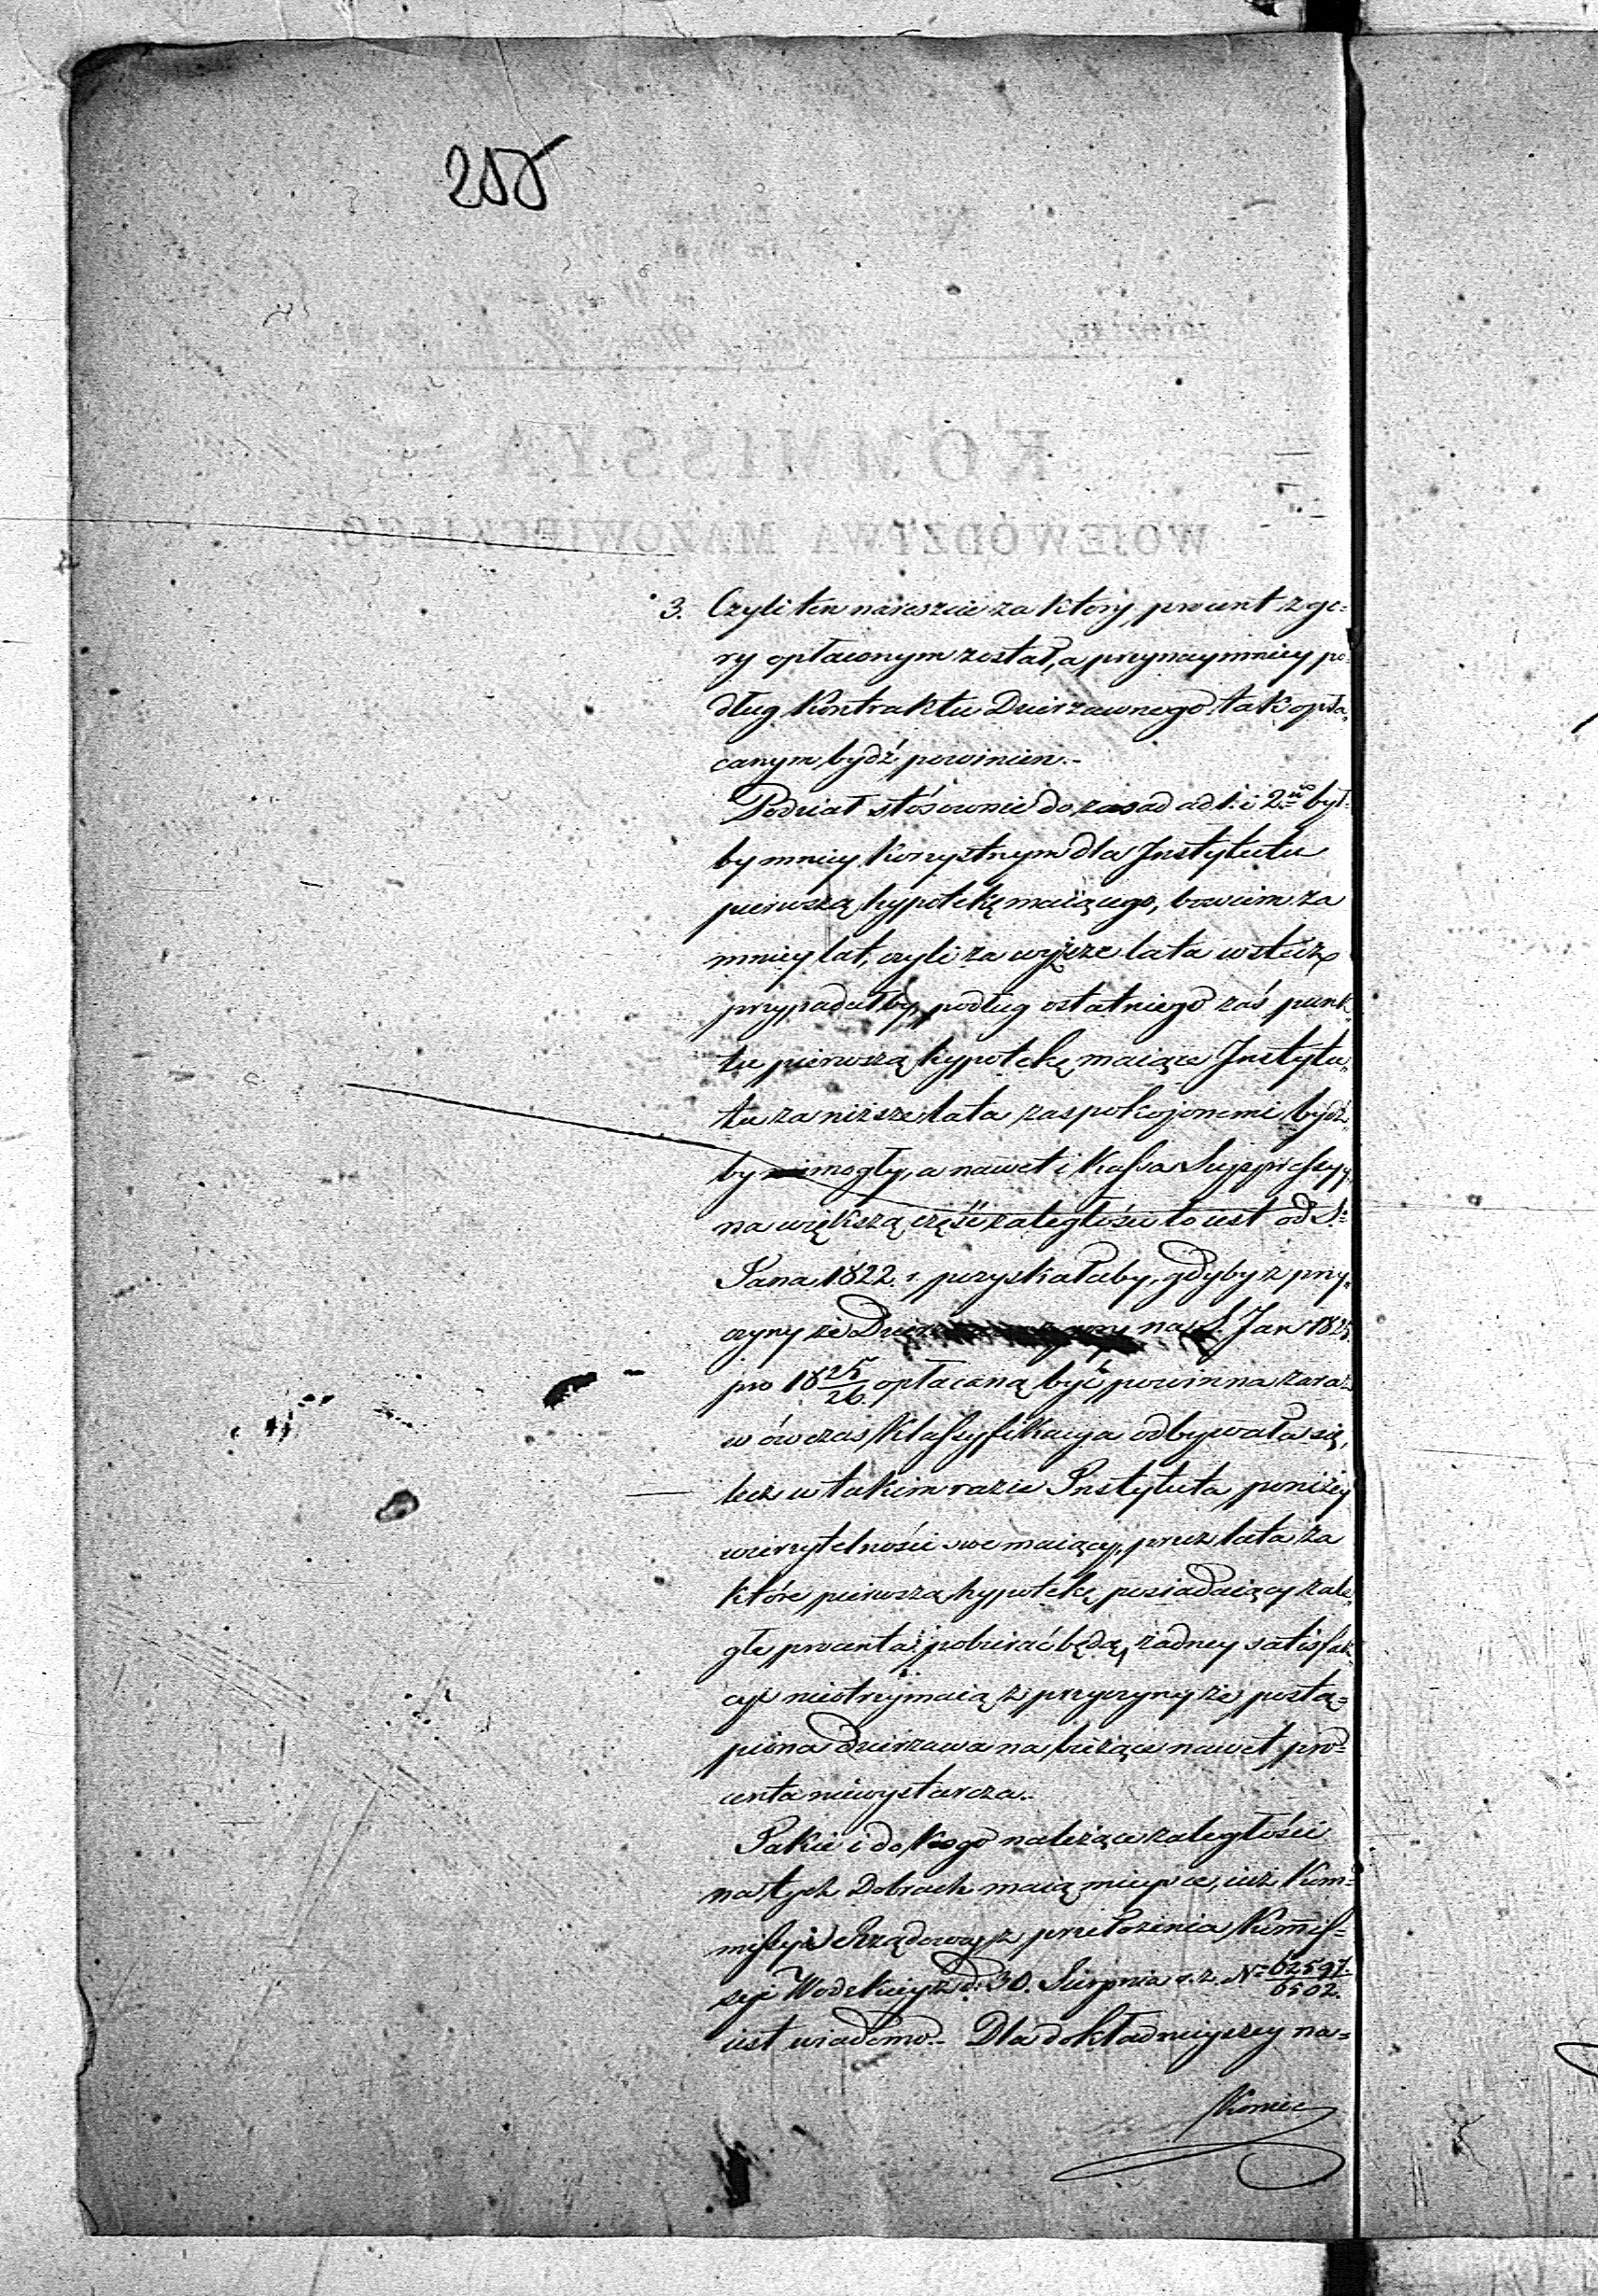 255
3. Czyli ten nareszcie za który, procent z gó-
ry opłaconym został, a przynaymniey po-
dług Kontraktu Dzierzawnego tak opła-
canym bydź powinien.-
Podział stósownie do zasad ad 1. i 2do był-
by mniey korzystnym dla Instytutu
pierwszą hypotekę maiącego, bowiem za
mniey lat, czyli za wyższe lata wstecz
przypadałby, podług ostatniego zaś punk-
tu pierwszą hypotekę maiące Instytu-
ta za niższe lata zaspokojonemi bydź
by mogły, a nawet i Kassa Suppressyy-
na większą część zaległości to iest od S.
Jana 1822. r. pozyskałaby, gdyby z przy-
czyny że na S. Jan 1825
pro 1825/26. opłacaną być powinna zaraz
w ówczas Klassyfikacya odbywała się,
lecz w takim razie Instytuta poniżey
wierzytelności swe maiący, przez lata za
które pierwszą hypotekę posiadaiący zale-
głe procenta pobierać będą, żadney satisfak-
cyi nieotrzymaią z przyczyny że postą-
piona dzierzawa na bieżące nawet pro-
centa niewystarcza.
Jakie i do kogo należące zaległości
na tych Dobrach maią mieysce, iuż Kom-
missyi Rządowey z przełożenia Kommis-
syi Wodzkiey z d. 30. Sierpnia r. z. No 62597./6502.
iest wiadomo.- Dla dokładnieyszey na-
Koniec
KOMMISSYA
WOJEWÓDZTWA MAZOWIECKIEGO.